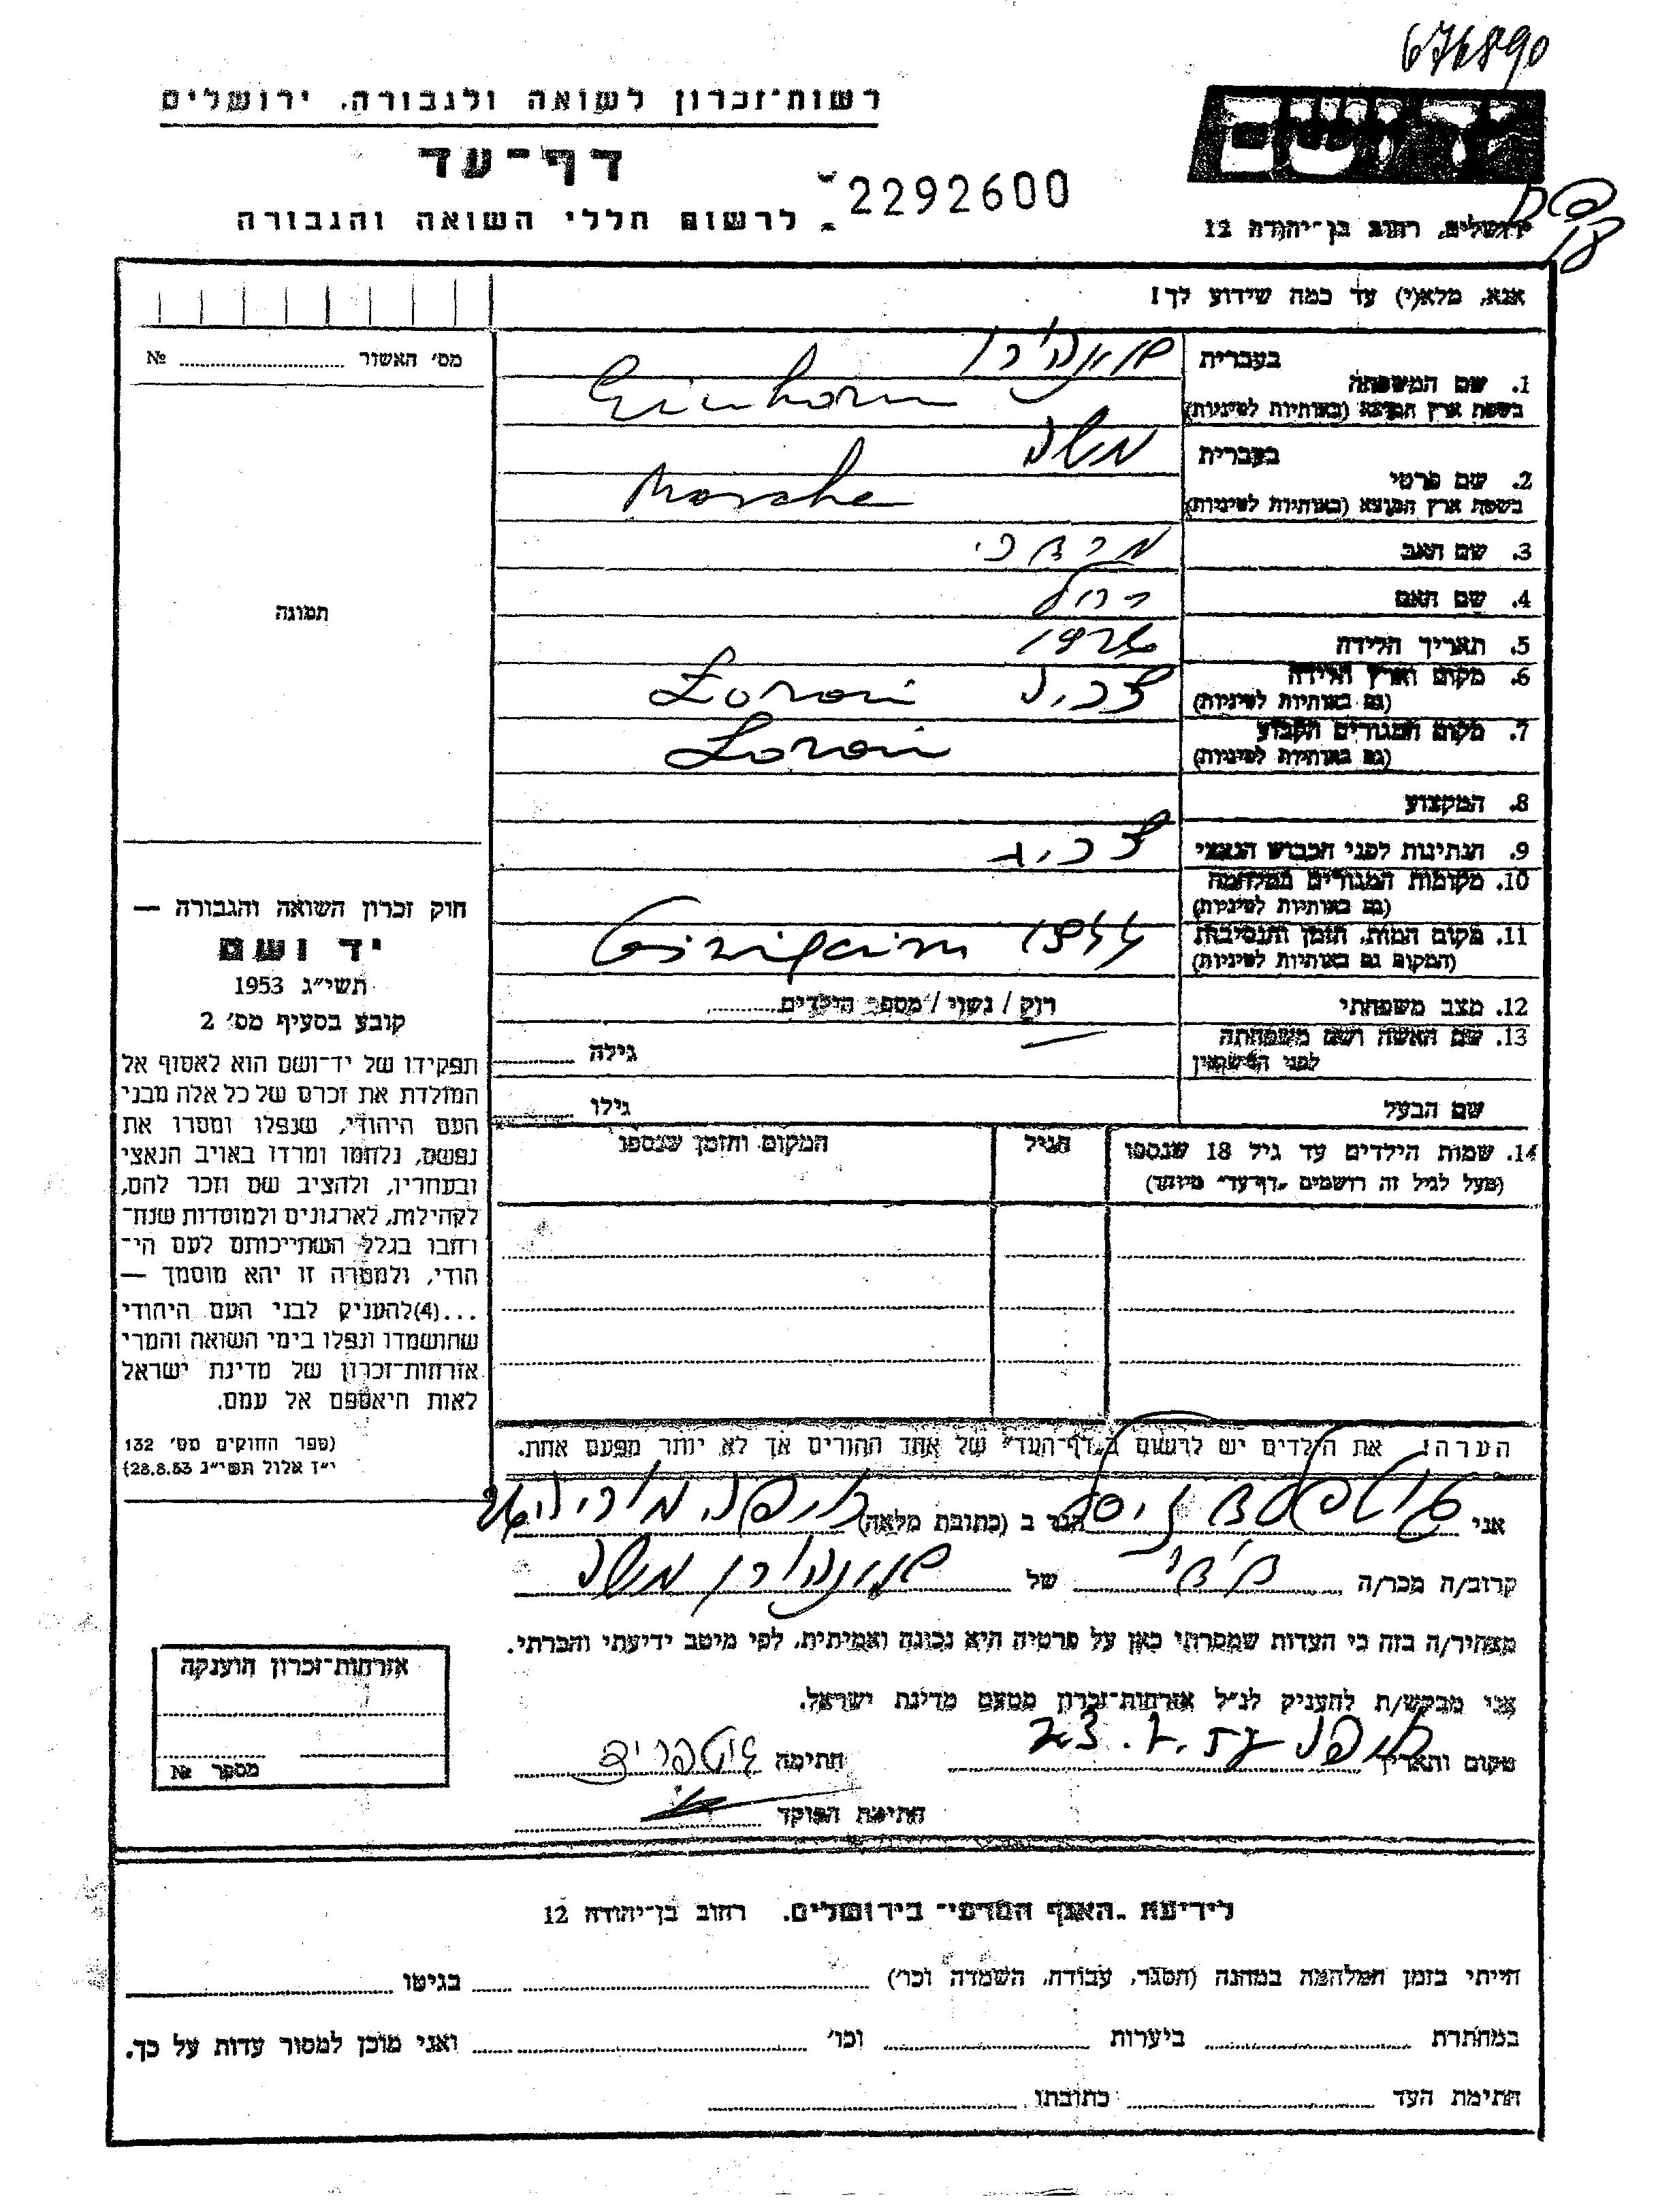 676890
רשות־זכרון לשואה ולגבורה, ירושלים
יד ושם
דף־עד
2292600
לרשום חללי השואה והגבורה
ירושלים, רחוב בן־יהודה 12
אנא, מלא(י) עד כמה שידוע לך!
מס׳ האשור № 
1. שם המשפחה
בעברית
בשפת ארץ המוצא (באותיות לטיניות) Einhorn
2. שם פרטי
בעברית משה
בשפת ארץ המוצא (באותיות לטיניות) Morshe
3. שם האב מרדכי
4. שם האם רחל
5. תאריך הלידה
6. מקום וארץ הלידה
(גם באותיות לטיניות)
7. מקום המגורים הקבוע
(גם באותיות לטיניות)
8. המקצוע
9. הנתינות לפני הכבוש הנאצי
10. מקומות המגורים במלחמה
(גם באותיות לטיניות)
11. מקום המות, הזמן והנסיבות 1944
(המקום גם באותיות לטיניות)
12. מצב משפחתי רווק / נשוי / מספר הילדים
13. שם האשה ושם משפחתה גילה
לפני הנישואין
שם הבעל גילו
14. שמות הילדים עד גיל 18 שנספו הגיל המקום והזמן שנספו
(מעל לגיל זה רושמים "דף־עד" מיוחד)
הערה: את הילדים יש לרשום ב"דף־העד" של אחד ההורים אך לא יותר מפעם אחת.
תמונה
חוק זכרון השואה והגבורה —
יד ושם
תשי״ג 1953
קובע בסעיף מס׳ 2
תפקידו של יד־ושם הוא לאסוף אל
המולדת את זכרם של כל אלה מבני
העם היהודי, שנפלו ומסרו את
נפשם, נלחמו ומרדו באויב הנאצי
ובעוזריו, ולהציב שם וזכר להם,
לקהילות, לארגונים ולמוסדות שנח־
רחבו בגלל השתייכותם לעם הי־
הודי, ולמטרה זו יהא מוסמך —
...(4)להעניק לבני העם היהודי
שהושמדו ונפלו בימי השואה והמרי
אזרחות־זכרון של מדינת ישראל
לאות היאספם אל עמם.
(ספר החוקים מס׳ 132
י״ז אלול תשי״ג 28.8.53)
אני הגר ב (כתובת מלאה) חיפה
קרוב/ה מכר/ה של משה
מצהיר/ה בזה כי העדות שמסרתי כאן על פרטיה היא נכונה ואמיתית, לפי מיטב ידיעתי והכרתי.
אני מבקש/ת להעניק לנ״ל אזרחות־זכרון מטעם מדינת ישראל.
מקום ותאריך חיפה חתימה
חתימת הפוקד
אזרחות־זכרון הוענקה
מספר №
לידיעת "האגף המדעי" בירושלים, רחוב בן־יהודה 12
הייתי בזמן המלחמה במחנה (הסגר, עבודה, השמדה וכו׳) בגיטו
במחתרת ביערות וכו׳ ואני מוכן למסור עדות על כך.
חתימת העד כתובתו